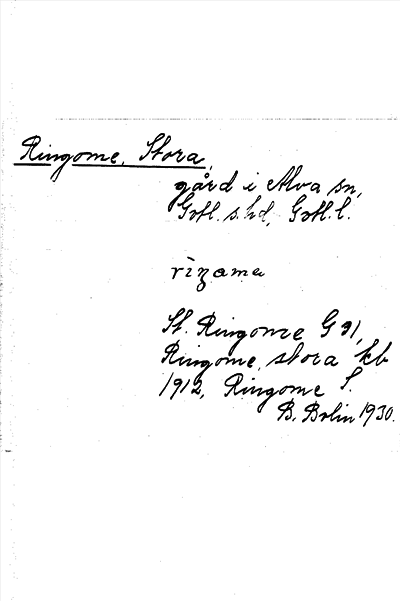 Ringome, Stora,
gård i Alva sn,
Gotl. s. hd, Gotl. l.
rìŋoma
St. Ringome G 91,
Ringome, stora kb
1912, Ringome S.
B. Bolin 1930.